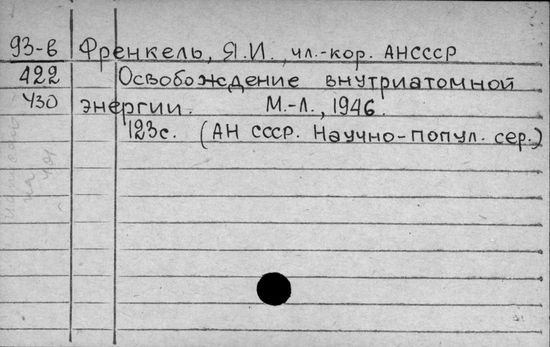 93-в Френкель, Я.И., чл.-кор. АНСССР
422 Освобождение внутриатомной
430 энергии. М.-Л., 1946.
123с. (АН СССР. Научно-попул. сер.)